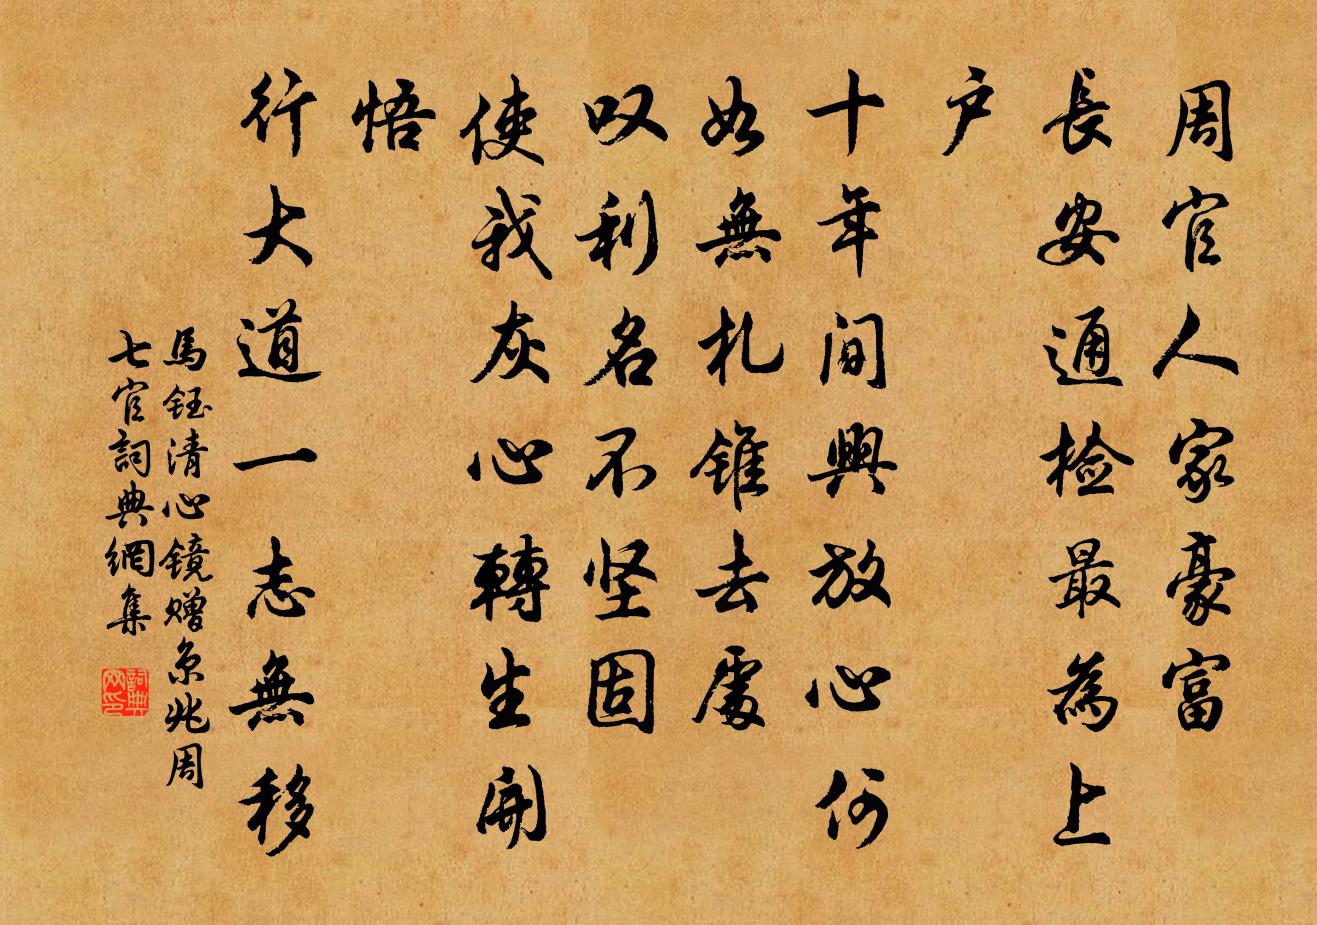 周官人家豪富
長安通検最為上
户
十年間興放心何
如無札錐去處
叹利名不坚固
使我灰心轉生開
悟
行大道一志無移
馬鈺清心鏡赠京兆周
七官詞典網集
詞典網印